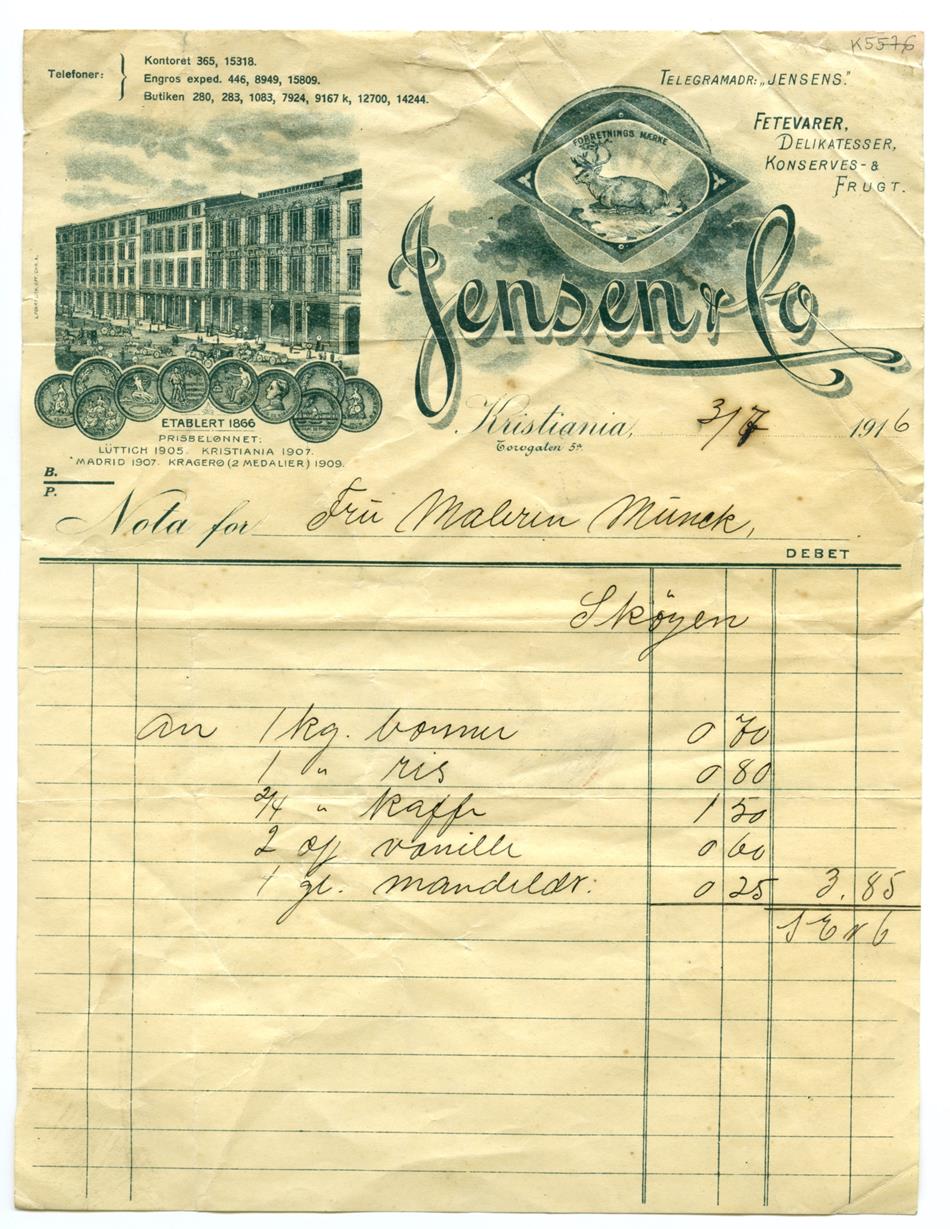 K5576
Telefoner:
Kontoret 365, 15318.
Engros exped. 446, 8949, 15809.
Butiken 280, 283, 1083, 7924, 9167 k, 12700, 14244.
TELEGRAMADR: „JENSENS."
FETEVARER,
DELIKATESSER,
KONSERVES- &
FRUGT.
FORRETNINGS MÆRKE
Jensen & Co
ETABLERT 1866
PRISBELØNNET:
LÜTTICH 1905. KRISTIANIA 1907.
MADRID 1907. KRAGERØ (2 MEDALIER) 1909.
Kristiania, 3/7 1916
Torvgaten 5a
B.
P.
Nota for Fru Malerin Munck,
DEBET
Sköyen
an 1 kg. bønner 0 70
1 " ris 0 80
2/4 " kaffe 1 50
2 vanille 0 60
1 gl. mandeldr: 0 25 3.85